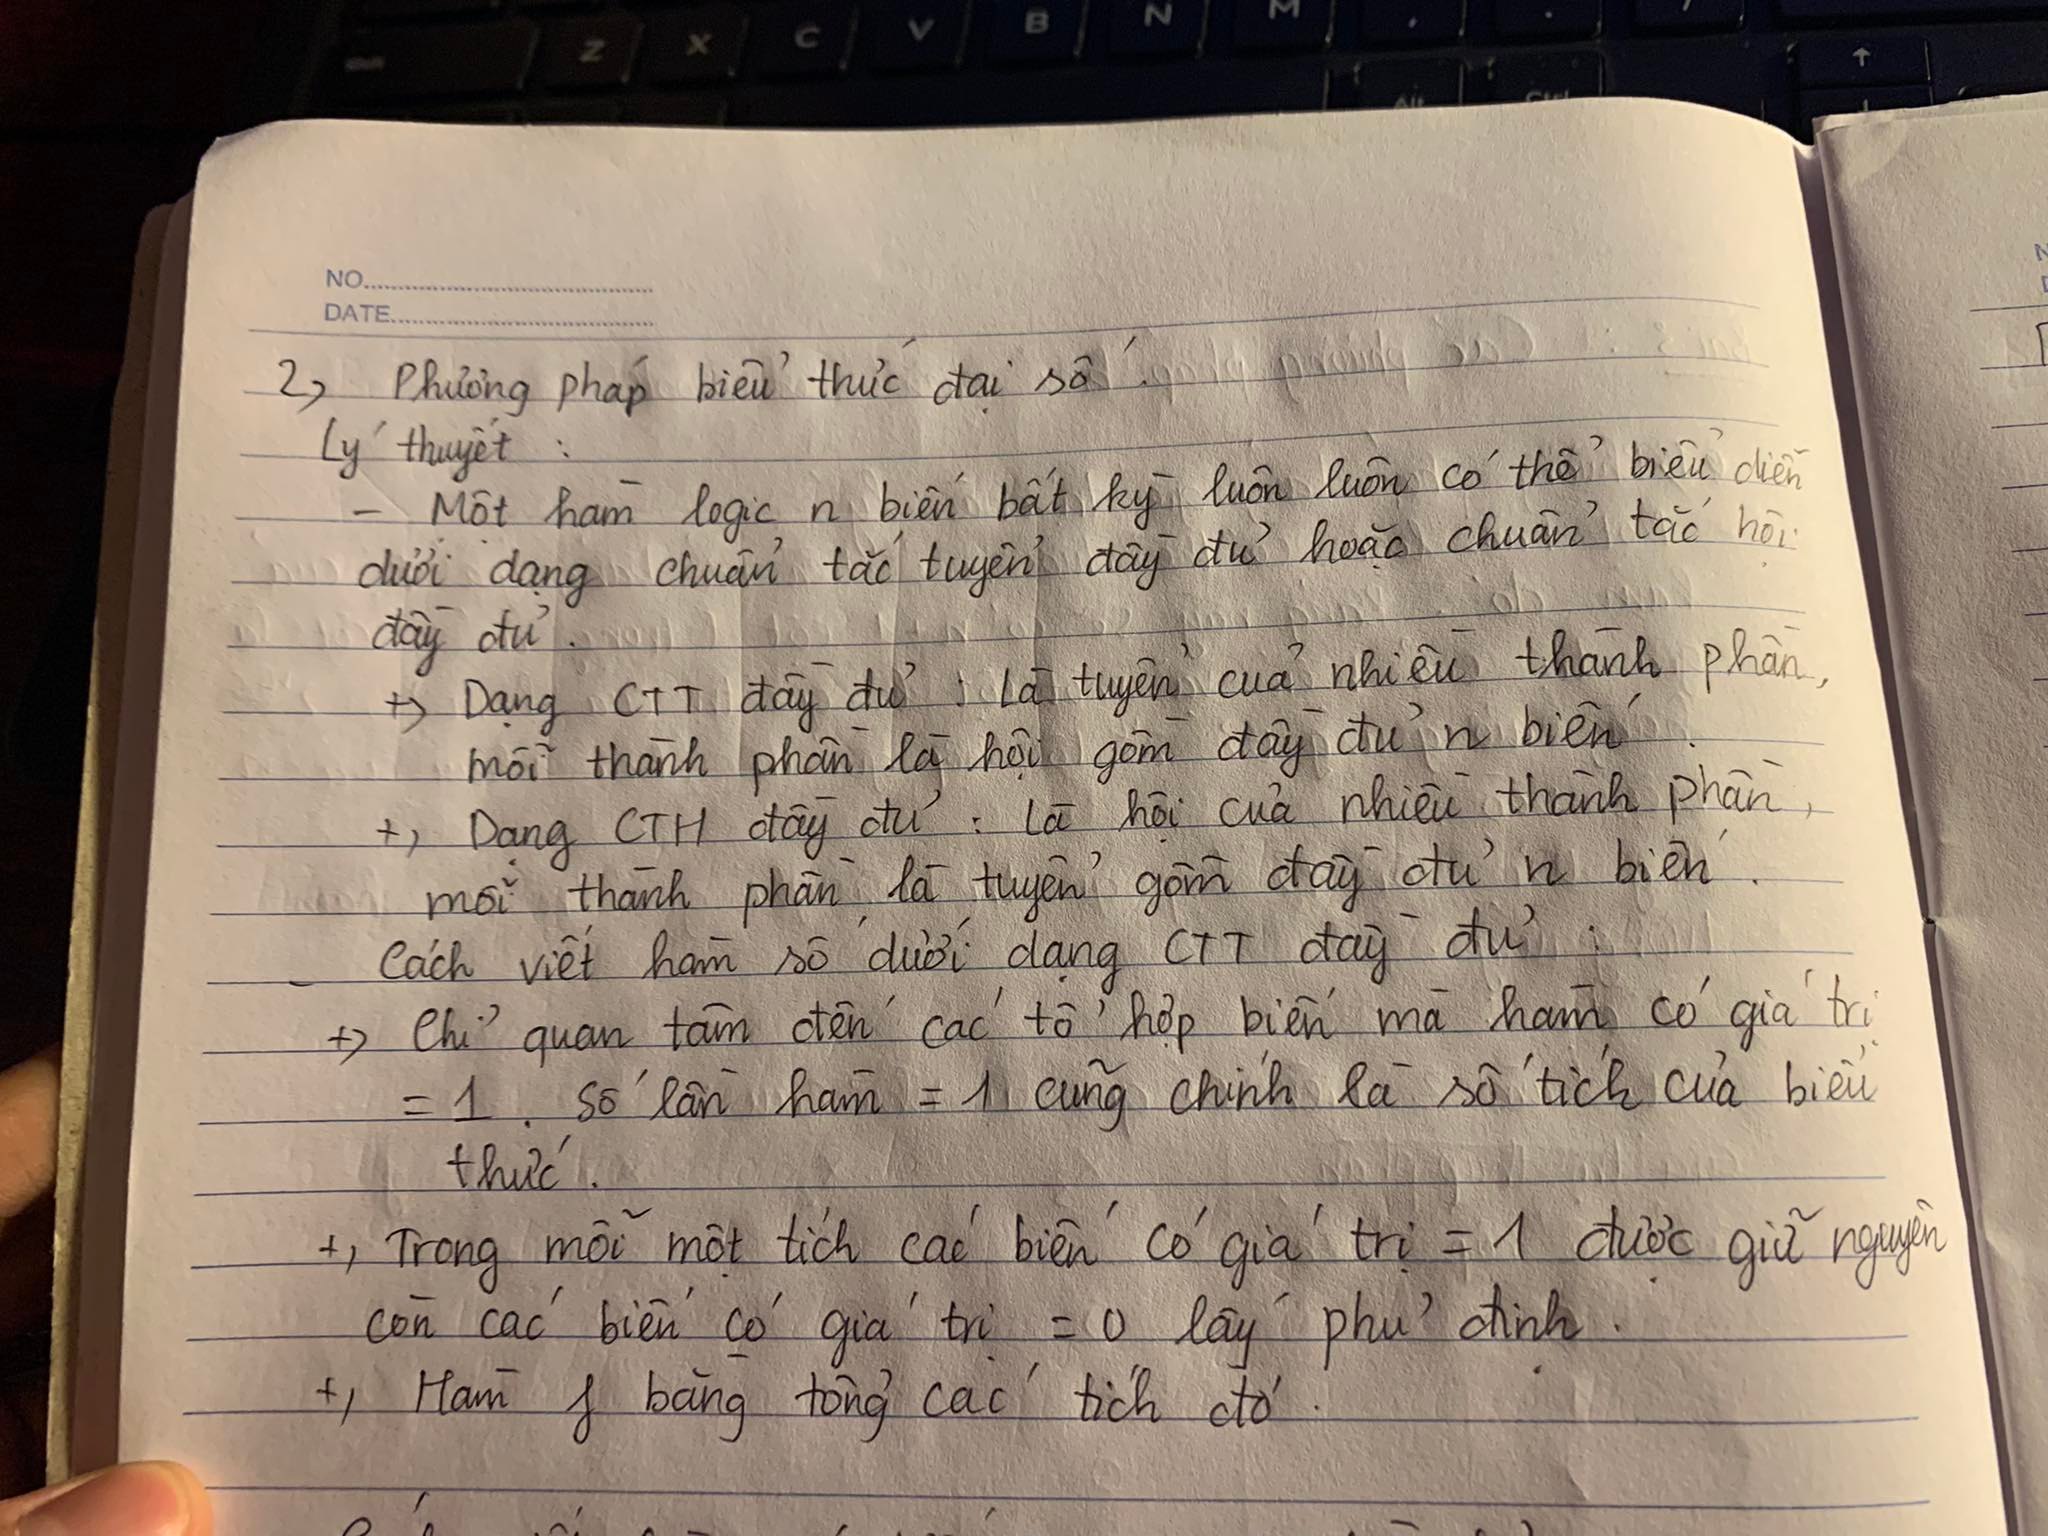 Z X C V B N M , . /
Alt Ctrl
NO
DATE
2, Phương pháp biểu thức đại số.
Lý thuyết :
- Một hàm logic n biến bất kỳ luôn luôn có thể biểu diễn
dưới dạng chuẩn tắc tuyển đầy đủ hoặc chuẩn tắc hội
đầy đủ.
+, Dạng CTT đầy đủ : Là tuyển của nhiều thành phần,
mỗi thành phần là hội gồm đầy đủ n biến.
+, Dạng CTH đầy đủ : Là hội của nhiều thành phần,
mỗi thành phần là tuyển gồm đầy đủ n biến.
- Cách viết hàm số dưới dạng CTT đầy đủ :
+, Chỉ quan tâm đến các tổ hợp biến mà hàm có giá trị
= 1. Số lần hàm = 1 cũng chính là số tích của biểu
thức.
+, Trong mỗi một tích các biến có giá trị = 1 được giữ nguyên
còn các biến có giá trị = 0 lấy phủ định.
+, Hàm f bằng tổng các tích đó.